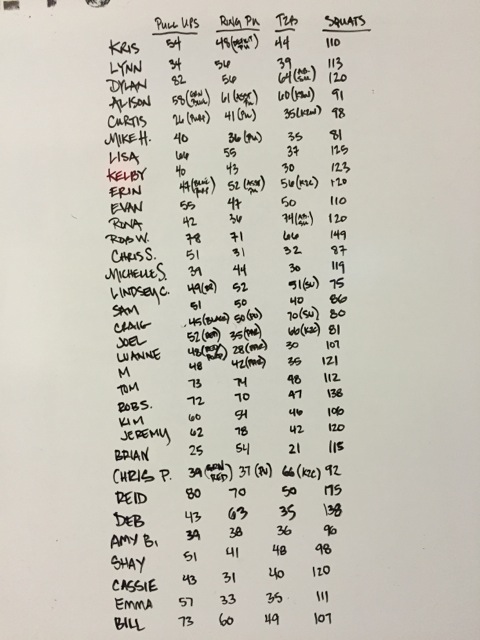 PULL UPS RING PU T2B SQUATS
KRIS 54 48 PU) 44 110
LYNN 34 56 39 113
DYLAN 82 56 64 120
ALISON 58 61 (ASST PU) 60 (K2N) 91
CURTIS 26 41 (PU) 35 (K2N) 98
MIKE H. 40 36 (PU) 35 81
LISA 66 55 37 125
KELBY 40 43 30 123
ERIN 47 52 (ASST PU) 56 (K2C) 120
EVAN 55 47 50 110
RONA 42 36 74 120
ROB W. 78 71 66 149
CHRIS S. 51 31 32 87
MICHELLE S. 39 44 30 119
LINDSEY C. 49 52 51 (SU) 75
SAM 51 50 40 86
CRAIG 45 (BLACK) 50 (PU) 70 (SU) 80
JOEL 52 (RED) 35 66 (K2C) 81
LUANNE 48 28 30 107
M 48 42 35 121
TOM 73 74 48 112
ROB S. 72 70 47 138
KIM 60 54 46 106
JEREMY 62 78 42 120
BRIAN 25 54 21 115
CHRIS P. 39 (GRN RED) 37 (PU) 66 (K2C) 92
REID 80 70 50 175
DEB 43 63 35 138
AMY B. 39 38 36 96
SHAY 51 41 48 98
CASSIE 43 31 40 120
EMMA 57 33 35 111
BILL 73 60 49 107